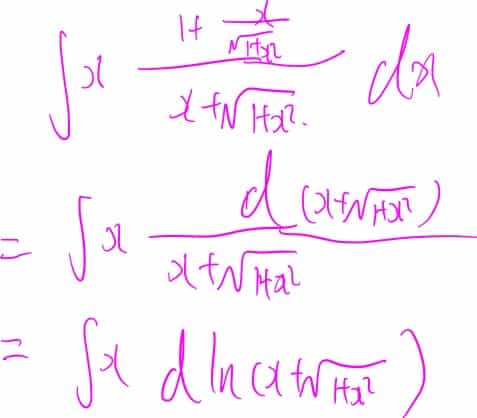 ∫ x (1 + x/√(1+x²)) / (x + √(1+x²)) dx
= ∫ x d(x + √(1+x²)) / (x + √(1+x²))
= ∫ x d ln(x + √(1+x²))